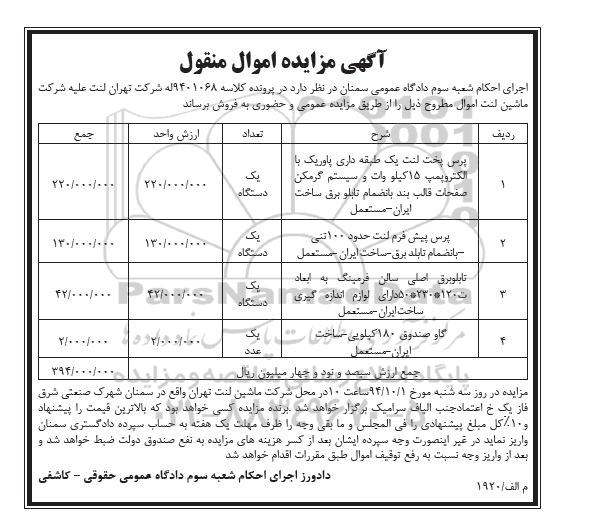 آگهی مزایده اموال منقول
اجرای احکام شعبه سوم دادگاه عمومی سمنان در نظر دارد در پرونده کلاسه ۹۴۰۱۰۶۸له شرکت تهران لنت علیه شرکت
ماشین لنت اموال مطروح ذیل را از طریق مزایده عمومی و حضوری به فروش برساند
ردیف شرح تعداد ارزش واحد جمع
۱ پرس پخت لنت یک طبقه داری پاوریک با
الکتروپمپ ۱۵کیلو وات و سیستم گرمکن
صفحات قالب بند بانضمام تابلو برق ساخت
ایران-مستعمل
یک دستگاه ۲۲۰/۰۰۰/۰۰۰ ۲۲۰/۰۰۰/۰۰۰
۲ پرس پیش فرم لنت حدود ۱۰۰تنی
-بانضمام تابلد برق-ساخت ایران -مستعمل
یک دستگاه ۱۳۰/۰۰۰/۰۰۰ ۱۳۰/۰۰۰/۰۰۰
۳ تابلوبرق اصلی سالن فرمینگ به ابعاد
ت۱۲۰*۲۳۰*۵۰دارای لوازم اندازه گیری
ساخت‌ایران-مستعمل
یک دستگاه ۴۲/۰۰۰/۰۰۰ ۴۲/۰۰۰/۰۰۰
۴ گاو صندوق ۱۸۰کیلویی-ساخت
ایران-مستعمل
یک عدد ۲/۰۰۰/۰۰۰ ۲/۰۰۰/۰۰۰
جمع ارزش سیصد و نود و چهار میلیون ریال ۳۹۴/۰۰۰/۰۰۰
مزایده در روز سه شنبه مورخ ۹۴/۱۰/۱ساعت ۱۰در محل شرکت ماشین لنت تهران واقع در سمنان شهرک صنعتی شرق
فاز یک خ اعتمادجنب الیاف سرامیک برگزار خواهد شد .برنده مزایده کسی خواهد بود که بالاترین قیمت را پیشنهاد
و۱۰٪کل مبلغ پیشنهادی را فی المجلس و ما بقی وجه را ظرف مهلت یک هفته به حساب سپرده دادگستری سمنان
واریز نماید در غیر اینصورت وجه سپرده ایشان بعد از کسر هزینه های مزایده به نفع صندوق دولت ضبط خواهد شد و
بعد از واریز وجه نسبت به رفع توقیف اموال طبق مقررات اقدام خواهد شد
دادورز اجرای احکام شعبه سوم دادگاه عمومی حقوقی - کاشفی
م الف/۱۹۲۰